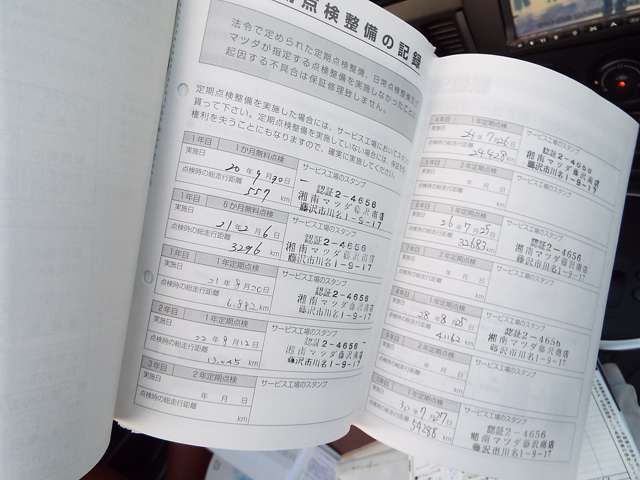 点検整備の記録
法令で定められた定期点検整備、日常点検整備など
マツダが指定する点検整備を実施しなかったことに
起因する不具合は保証修理致しません。
定期点検整備を実施した場合には、サービス工場において
貰って下さい。定期点検整備を実施していない場合には、保証を
権利を失うことにもなりますので、確実に実施してください。
1年目 1か月無料点検 サービス工場のスタンプ
実施日 20年9月30日
点検時の総走行距離 557km
認証2-4656
湘南マツダ藤沢南店
藤沢市川名1-9-17
1年目 6か月無料点検 サービス工場のスタンプ
実施日 21年2月6日
点検時の総走行距離 3296km
認証2-4656
湘南マツダ藤沢南店
藤沢市川名1-9-17
1年目 1年定期点検 サービス工場のスタンプ
実施日 21年9月20日
点検時の総走行距離 6,842km
認証2-4656
湘南マツダ藤沢南店
藤沢市川名1-9-17
2年目 1年定期点検 サービス工場のスタンプ
実施日 22年9月12日
点検時の総走行距離 13045km
認証2-4656
湘南マツダ藤沢南店
藤沢市川名1-9-17
3年目 2年定期点検 サービス工場のスタンプ
実施日 年 月 日
点検時の総走行距離 km
1年定期点検 サービス工場のスタンプ
24年7月26日
24,428km
認証2-4656
湘南マツダ藤沢南店
藤沢市川名1-9-17
2年定期点検 サービス工場のスタンプ
年 月 日
km
1年定期点検 サービス工場のスタンプ
26年7月25日
32683km
認証2-4656
湘南マツダ藤沢南店
藤沢市川名1-9-17
2年定期点検 サービス工場のスタンプ
年 月 日
km
1年定期点検 サービス工場のスタンプ
28年8月
41162km
認証2-4656
湘南マツダ藤沢南店
藤沢市川名1-9-17
2年定期点検 サービス工場のスタンプ
年 月 日
km
1年定期点検 サービス工場のスタンプ
30年7月27日
54288km
認証2-4656
湘南マツダ藤沢南店
藤沢市川名1-9-17